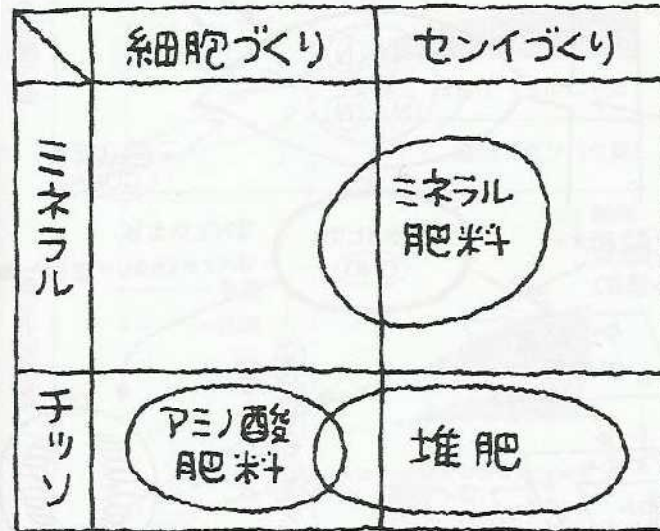 細胞づくり
センイづくり
ミネラル
ミネラル
肥料
チッソ
アミノ酸
肥料
堆肥